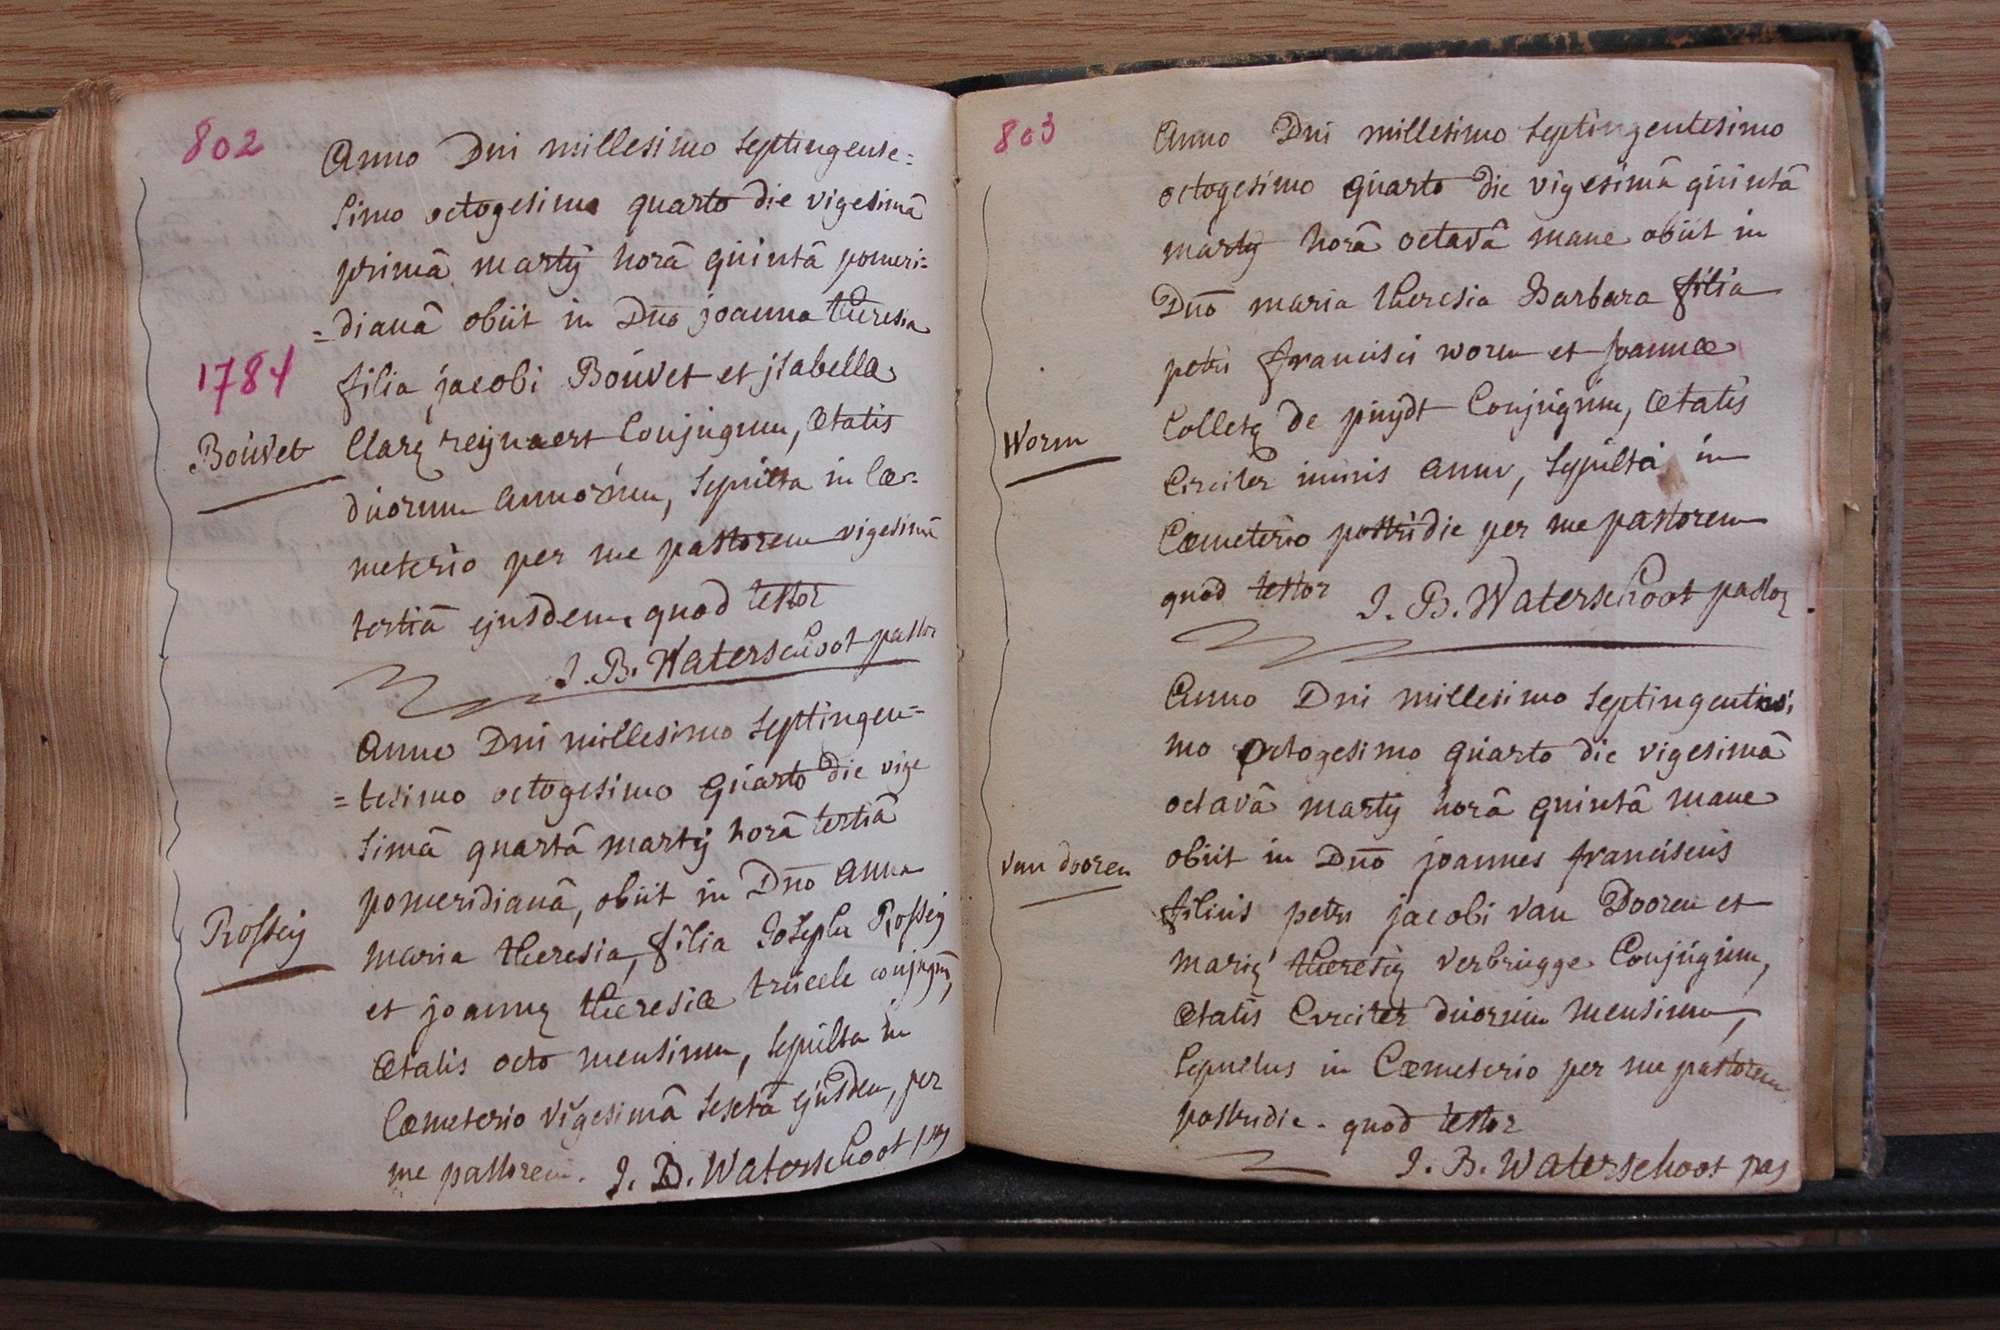 802
Anno Dni millesimo septingente=
simo octogesimo quarto die vigesimâ
primâ martÿ horâ quintâ pomeri=
=dianâ obiit in Dno joanna theresia
1784
filia jacobi Bouvet et jsabella
Bouvet
Claræ reijnaert Conjugum, ætatis
duorum annorum, sepulta in Cœ=
meterio per me pastorem vigesimâ
tertiâ ejusdem quod testor
J. B. Waterschoot pastor
Anno Dni millesimo septingen=
=tesimo octogesimo quarto die vige
simâ quartâ martÿ horâ tertiâ
pomeridianâ, obiit in Dno anna
Rossey
maria theresia, filia Josephi Rossey
et joannæ theresiæ truceele conjugum,
ætatis octo mensium, sepulta in
Cœmeterio vigesimâ sextâ ejusdem, per
me pastorem. J. B. Waterschoot pas
803
Anno Dni millesimo septingentesimo
octogesimo quarto die vigesimâ quintâ
martÿ horâ octavâ mane obiit in
Dno maria theresia Barbara filia
petri francisci worm et Joannæ
Worm
Colletæ de puydt Conjugum, ætatis
Circiter unius anni, sepulta in
Cœmeterio postridie per me pastorem
quod testor J. B. Waterschoot pastor
Anno Dni millesimo septingentesi
mo octogesimo quarto die vigesimâ
octavâ martÿ horâ quintâ mane
van dooren
obiit in Dno joannes franciscus
filius petri jacobi van Dooren et
mariæ theresiæ verbrugge Conjugum,
ætatis Circiter duorum mensium,
sepultus in Cœmeterio per me pastorem
postridie. quod testor
J. B. Waterschoot pas